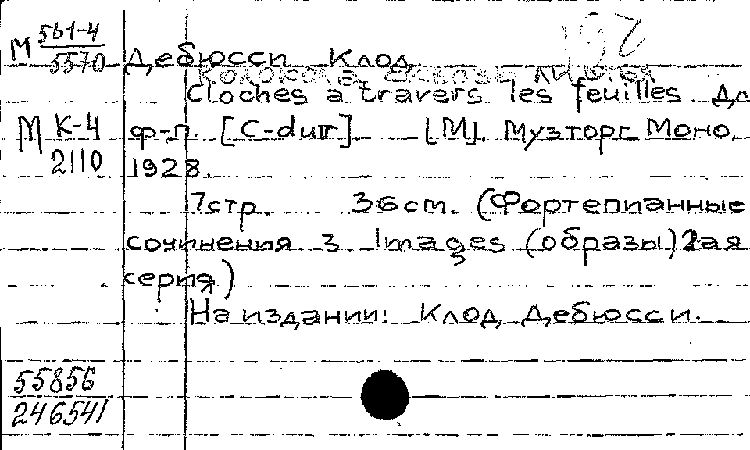 М 561-4
5570
Дебюсси Клод
Колокола сквозь листья
Cloches a travers les feuilles Дл
М К-4
2110
ф-п. [C-dur]. [М]. Музторг Моно.
1928.
7стр. 36ст. (Фортепианные
сочинения 3. Images (образы) 2ая
серия)
На издании: Клод Дебюсси.
55856
246541